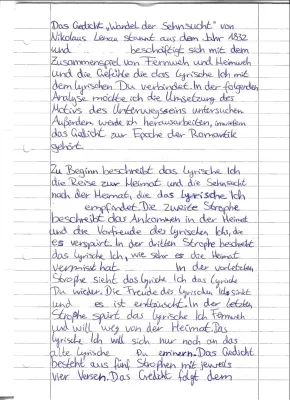 Das Gedicht "Wandel der Sehnsucht" von
Nikolaus Lenau stammt aus dem Jahr 1832
und beschäftigt sich mit dem
Zusammenspiel von Fernweh und Heimweh
und die Gefühle die das Lyrische Ich mit
dem Lyrischen Du verbindet. In der folgenden
Analyse möchte ich die Umsetzung des
Motivs des Unterwegsseins untersuchen
Außerdem werde ich herausarbeiten, inwiefern
das Gedicht zur Epoche der Romantik
gehört.
Zu Beginn beschreibt das Lyrische Ich
die Reise zur Heimat und die Sehnsucht
nach der Heimat, die das Lyrische Ich
empfindet. Die zweite Strophe
beschreibt das Ankommen in der Heimat
und die Vorfreude des Lyrischen Ich, die
es verspürt. In der dritten Strophe beschreibt
das Lyrische Ich, wie sehr es die Heimat
vermisst hat. In der vorletzten
Strophe sieht das Lyrische Ich das Lyrische
Du wieder. Die Freude des Lyrischen Ich sinkt
und es ist enttäuscht. In der letzten
Strophe spürt das Lyrische Ich Fernweh
und will weg von der Heimat. Das
Lyrische Ich will sich nur noch an das
alte Lyrische Du erinnern. Das Gedicht
besteht aus fünf Strophen mit jeweils
vier Versen. Das Gedicht folgt dem